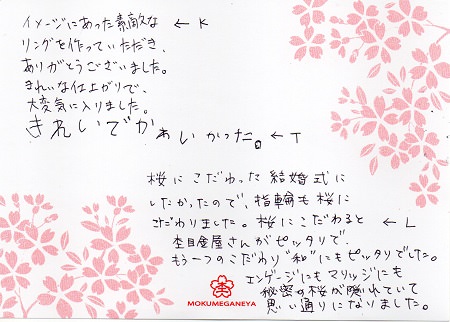 イメージにあった素敵な ← K
リングを作っていただき、
ありがとうございました。
きれいな仕上がりで、
大変気に入りました。
きれいでかぁいかった。← T
桜にこだわった結婚式に
したかったので、指輪も桜に
こだわりました。桜にこだわると ← L
杢目金屋さんがピッタリで、
もう一つのこだわり"和"にもピッタリでした。
エンゲージにもマリッジにも
秘密の桜が隠れていて
思い通りになりました。
MOKUMEGANEYA